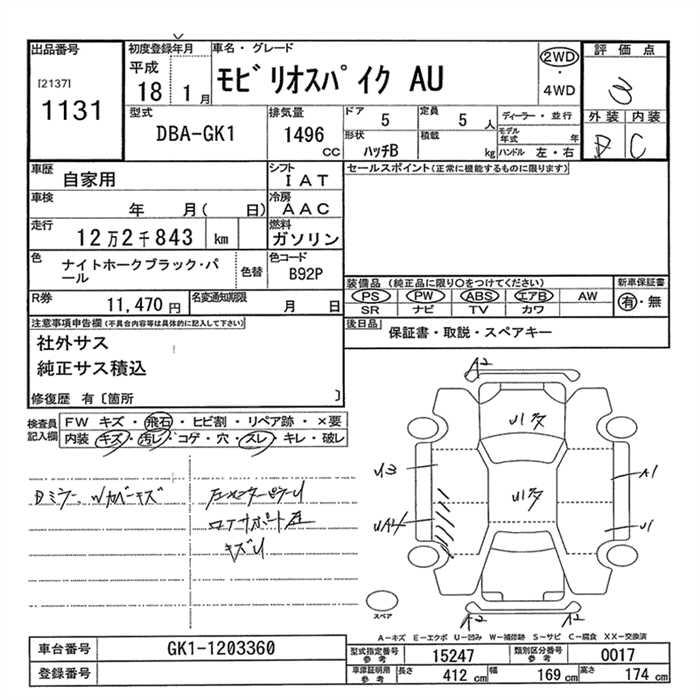 出品番号
[2137]
1131
初度登録年月
平成
18 1月
車名・グレード
モビリオスパイク AU
2WD
・
4WD
評価点
3
外装 内装
D C
型式
DBA-GK1
排気量
1496
CC
ドア
5
定員
5人
形状
ハッチB
積載
kg
ディーラー・並行
モデル年式 年
ハンドル 左・右
車歴
自家用
シフト
IAT
車検
年 月( 日)
冷房
AAC
走行
12万2千843 km
燃料
ガソリン
色
ナイトホークブラック・パール
色替
色コード
B92P
R券
11,470円
名変通知期限
月 日
セールスポイント(正常に機能するものに限ります)
装備品(純正品に限り○をつけてください)
PS PW ABS エアB AW
SR ナビ TV カワ
新車保証書
有・無
後日品
保証書・取説・スペアキー
注意事項申告欄(不具合内容等は具体的に記入して下さい)
社外サス
純正サス積込
修復歴 有〔箇所 〕
検査員
記入欄
FW キズ・飛石・ヒビ割・リペア跡・×要
内装 キズ・汚レ・コゲ・穴・スレ・キレ・破レ
キズU
A2
A1
U1
A2
A2
スペア
A-キズ E-エクボ U-凹み W-補修跡 S-サビ C-腐食 XX-交換済
車台番号
GK1-1203360
登録番号
型式指定番号
参考
15247
類別区分番号
参考
0017
車庫証明用
参考
長さ
412 cm
幅
169 cm
高さ
174 cm